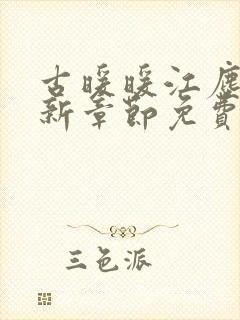 古暖暖江尘
新章节免费
三色派